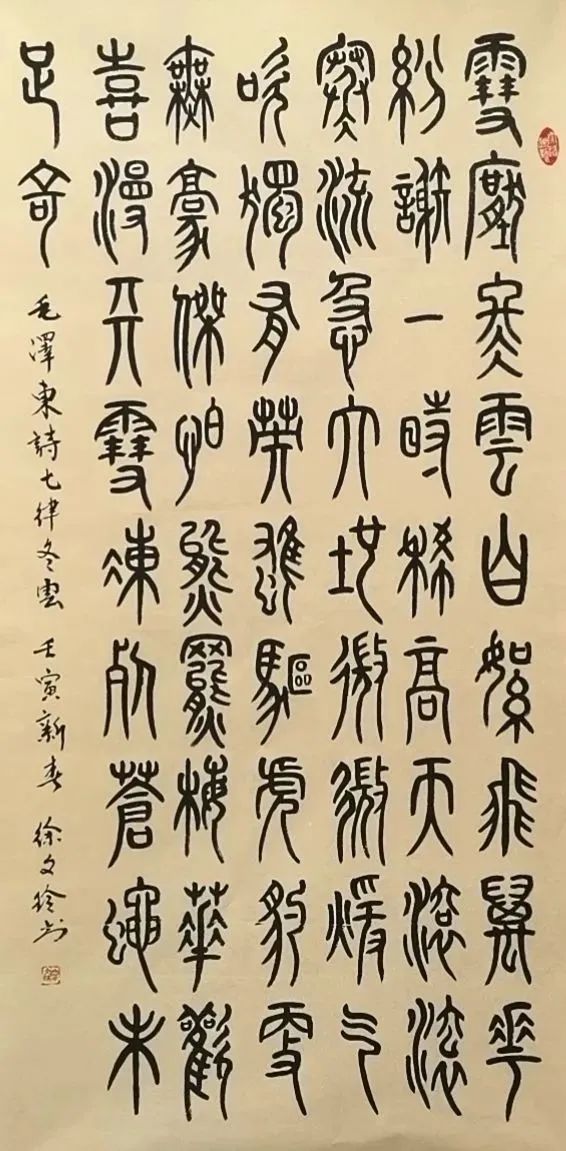 雪壓冬雲白絮飛萬花
紛謝一時稀高天滾滾
寒流急大地微微暖气
吹獨有英雄驅虎豹更
無豪傑怕熊羆梅華歡
喜漫天雪凍死蒼蠅未
足奇
毛澤東詩七律冬雲 壬寅新春 徐文书